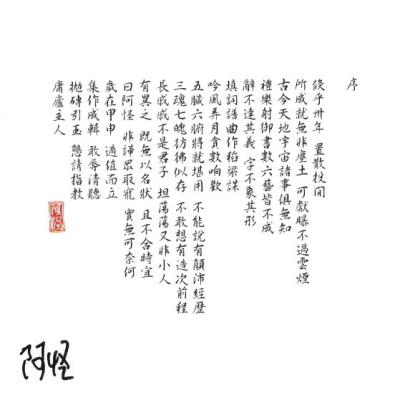 序
倏乎卅年 置散投閒
所成就無非塵土 可獻曝不過雲煙
古今天地宇宙諸事俱無知
禮樂射御書數六藝皆不成
辭不達其義 字不象其形
填詞譜曲作稻粱謀
吟風弄月貪數晌歡
五臟六腑將就堪用 不能說有顛沛經歷
三魂七魄彷彿似存 不敢想有造次前程
長戚戚不是君子 坦蕩蕩又非小人
有異之 既無以名狀 且不合時宜
曰阿怪 非譁眾取寵 實無可奈何
歲在甲申 適值而立
集作成輯 敢辱清聽
拋磚引玉 懇請指教
庸廬主人
阿怪
阿怪